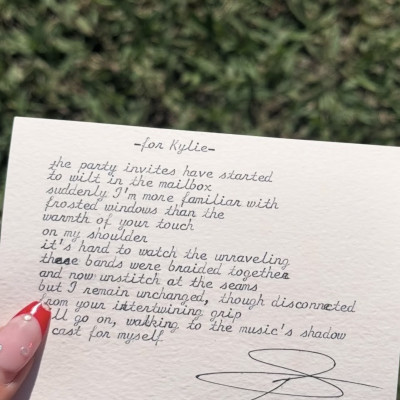 -for Kylie-
the party invites have started
to wilt in the mailbox
suddenly I'm more familiar with
frosted windows than the
warmth of your touch
on my shoulder
it's hard to watch the unraveling
these bands were braided together
and now unstitch at the seams
but I remain unchanged, though disconnected
from your intertwining grip
go on, walking to the music's shadow
cast for myself